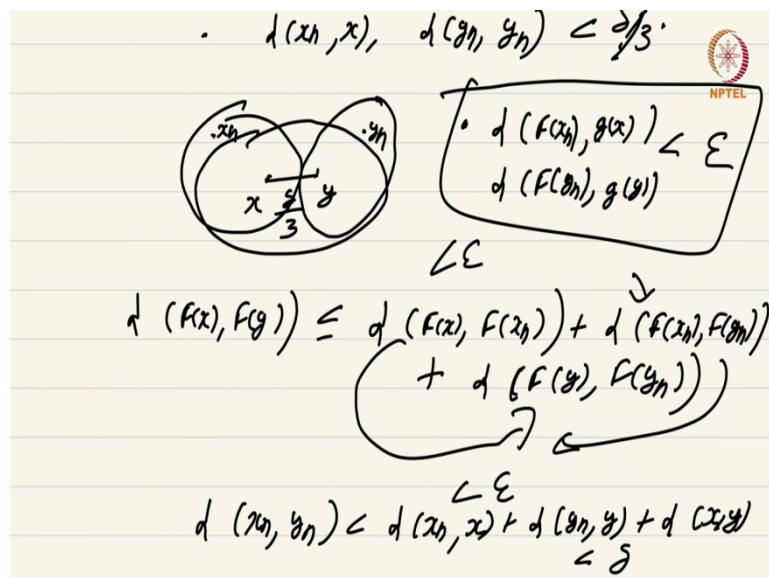 . d(xn, x), d(yn, yn) < δ/3.
NPTEL
.xn .yn
x δ/3 y
. d(F(xn), g(x)) < ε
d(F(yn), g(y))
< ε
d (F(x), F(y)) ≤ d (F(x), F(xn)) + d (F(xn), F(yn))
+ d (F(y), F(yn))
< ε
d (xn, yn) < d (xn, x) + d (yn, y) + d (x,y)
< δ